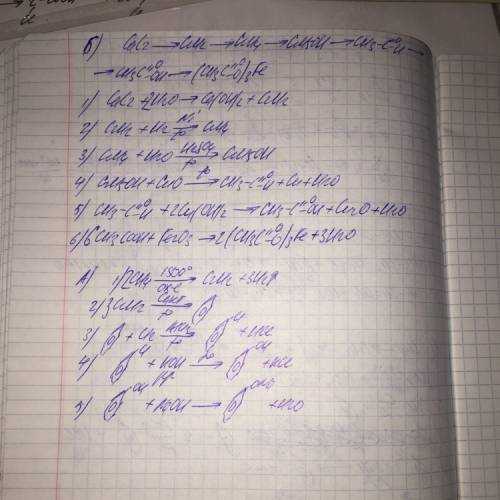 б) CaC2 → C2H2 → C2H4 → C2H5OH → CH3-C=O-H →
→ CH3C=O-OH → (CH3C=O-O)3Fe
1) CaC2 + 2H2O → Ca(OH)2 + C2H2
2) C2H2 + H2 Ni t° → C2H4
3) C2H4 + H2O H2SO4 t° → C2H5OH
4) C2H5OH + CuO t° → CH3-C=O-H + Cu + H2O
5) CH3-C=O-H + 2Cu(OH)2 → CH3-C=O-OH + Cu2O + H2O
6) 6CH3COOH + Fe2O3 → 2(CH3C=O-O)3Fe + 3H2O
А) 1) 2CH4 1500° → C2H2 + 3H2
2) 3C2H2 Cакт t° →
3) + Cl2 t° → Cl + HCl
4) Cl + HOH t° → OH + HCl
5) OH + NaOH → ONa + H2O